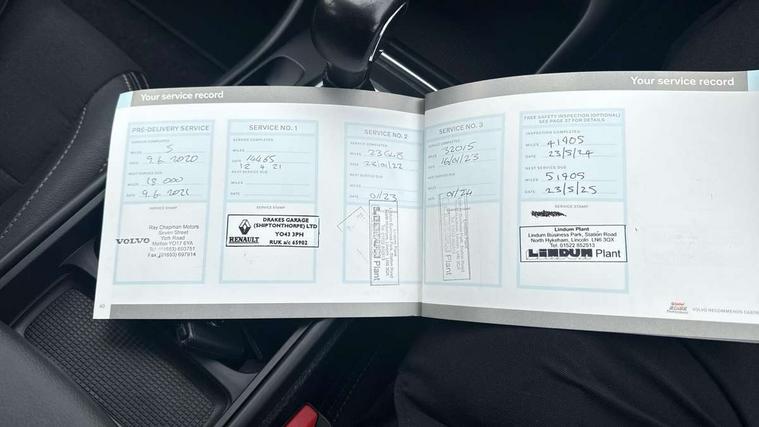 Your service record
PRE-DELIVERY SERVICE
SERVICE COMPLETED
MILES 5
DATE 9.6.2020
NEXT SERVICE DUE
MILES 18 000
DATE 9.6.2021
SERVICE STAMP
VOLVO
Ray Chapman Motors
Seven Street
York Road
Malton YO17 6YA
SERVICE NO. 1
SERVICE COMPLETED
MILES 14485
DATE 12 4 21
NEXT SERVICE DUE
MILES
DATE
SERVICE STAMP
RENAULT
DRAKES GARAGE
(SHIPTONTHORPE) LTD
YO43 3PH
RUK a/c 65902
SERVICE NO. 2
SERVICE COMPLETED
MILES
DATE
NEXT SERVICE DUE
MILES
DATE 01/23
SERVICE STAMP
Plant
40
Your service record
SERVICE NO. 3
SERVICE COMPLETED
MILES 32015
DATE 16/01/23
NEXT SERVICE DUE
MILES
DATE 01/24
SERVICE STAMP
Plant
FREE SAFETY INSPECTION (OPTIONAL)
SEE PAGE 37 FOR DETAILS
INSPECTION COMPLETED
MILES 41905
DATE 23/5/24
NEXT SERVICE DUE
MILES 51905
DATE 23/5/25
SERVICE STAMP
Lindum Plant
Lindum Business Park, Station Road
North Hykeham, Lincoln LN6 3QX
Tel: 01522 852513
LINDUM Plant
VOLVO RECOMMENDS